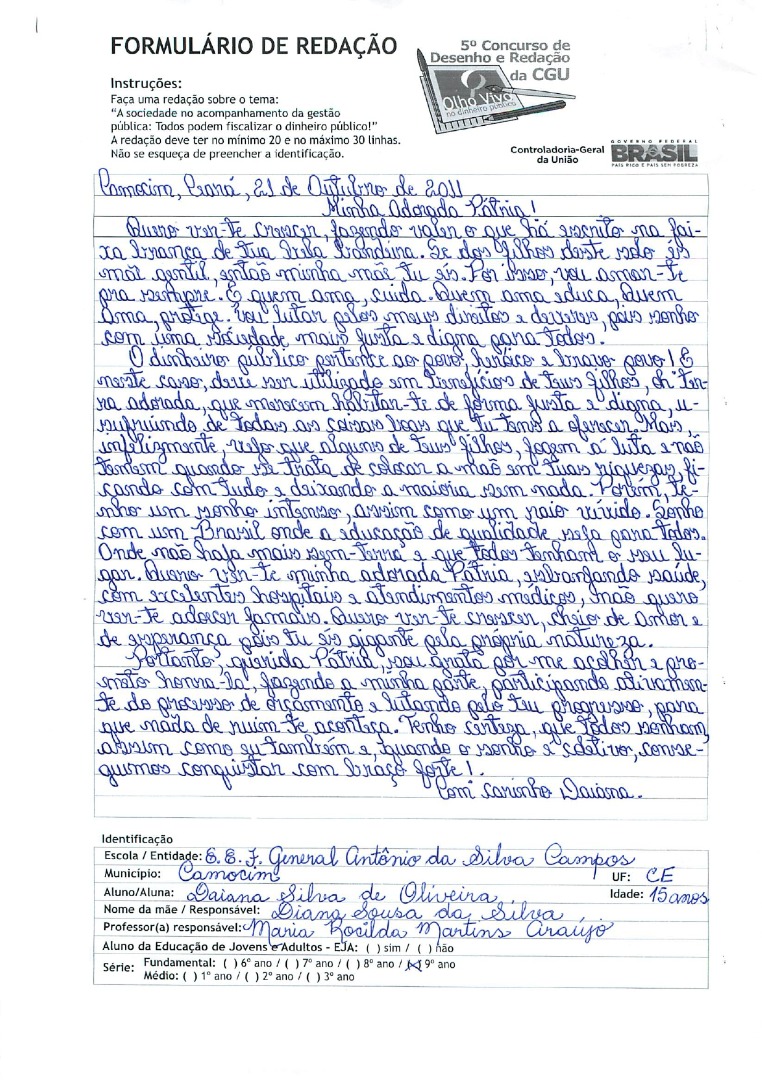 FORMULÁRIO DE REDAÇÃO
5º Concurso de
Desenho e Redação
da CGU
Olho Vivo
no dinheiro público
Instruções:
Faça uma redação sobre o tema:
“A sociedade no acompanhamento da gestão
pública: Todos podem fiscalizar o dinheiro público!”
A redação deve ter no mínimo 20 e no máximo 30 linhas.
Não se esqueça de preencher a identificação.
Controladoria-Geral
da União
GOVERNO FEDERAL
BRASIL
PAÍS RICO É PAÍS SEM POBREZA
Camocim, Ceará, 21 de Outubro de 2011
Minha Adorada Pátria!
Quero ver-te crescer, fazendo valer o que há escrito na fai-
xa branca de tua bela bandeira. Se dos filhos deste solo és
mãe gentil, então minha mãe tu és. Por isso, vou amar-te
pra sempre. E quem ama, cuida. Quem ama educa, Quem
ama, protege. Vou lutar pelos meus direitos e deveres, pois sonho
com uma sociedade mais justa e digna para todos.
O dinheiro público pertence ao povo, heróico e bravo povo! E
neste caso, deve ser utilizado em benefícios de teus filhos, oh ter-
ra adorada, que merecem habitar-te de forma justa e digna, u-
sufruindo de todas as coisas boas que tu tens a oferecer. Mas,
infelizmente, vejo que alguns de teus filhos, fogem à luta e não
temem quando se trata de colocar a mão em tuas riquezas, fi-
cando com tudo e deixando a maioria sem nada. Porém, te-
nho um sonho intenso, assim como um raio vívido. Sonho
com um Brasil onde a educação de qualidade seja para todos.
Onde não haja mais sem-terra e que todos tenham o seu lu-
gar. Quero ver-te minha adorada Pátria, esbanjando saúde,
com excelentes hospitais e atendimentos médicos, não quero
ver-te adoecer jamais. Quero ver-te crescer, cheio de amor e
de esperança pois tu és gigante pela própria natureza.
Portanto, querida Pátria, sou grata por me acolher e pro-
meto honra-la, fazendo a minha parte, participando ativamen-
te do processo de orçamento e lutando pelo teu progresso, para
que nada de ruim te aconteça. Tenho certeza, que todos sonham,
assim como eu também e, quando o sonho é coletivo, conse-
guimos conquistar com braço forte!.
Com carinho Daiana.
Identificação
Escola / Entidade: E. E. F. General Antônio da Silva Campos
Município: Camocim UF: CE
Aluno/Aluna: Daiana Silva de Oliveira Idade: 15 anos
Nome da mãe / Responsável: Diana Sousa da Silva
Professor(a) responsável: Maria Rocilda Martins Araújo
Aluno da Educação de Jovens e Adultos - EJA: ( ) sim / ( ) não
Série: Fundamental: ( ) 6º ano / ( ) 7º ano / ( ) 8º ano / (X) 9º ano
Médio: ( ) 1º ano / ( ) 2º ano / ( ) 3º ano